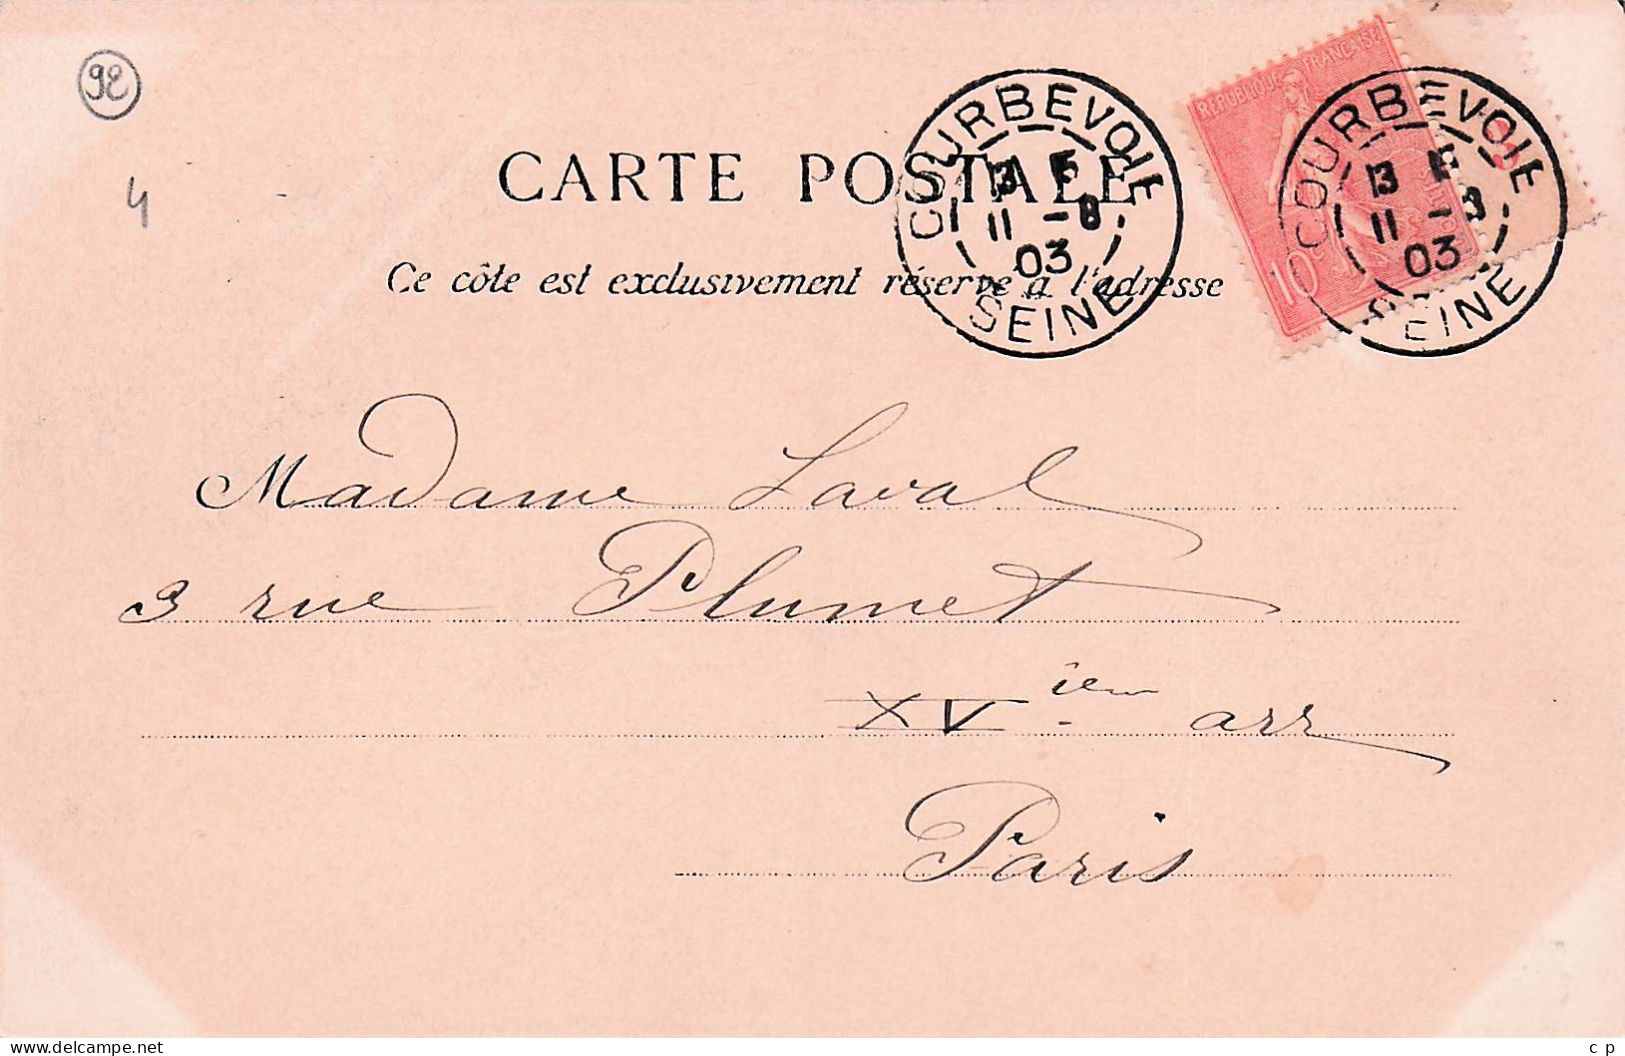 92
4
CARTE POSTALE
Ce côte est exclusivement réservé à l'adresse
COURBEVOIE
13 E
11 -8
03
SEINE
REPUBLIQUE FRANÇAISE
10c
COURBEVOIE
13 E
11 -8
03
SEINE
Madame Laval
3 rue Plumet
XVièm arr
Paris
delcampe.net
c p